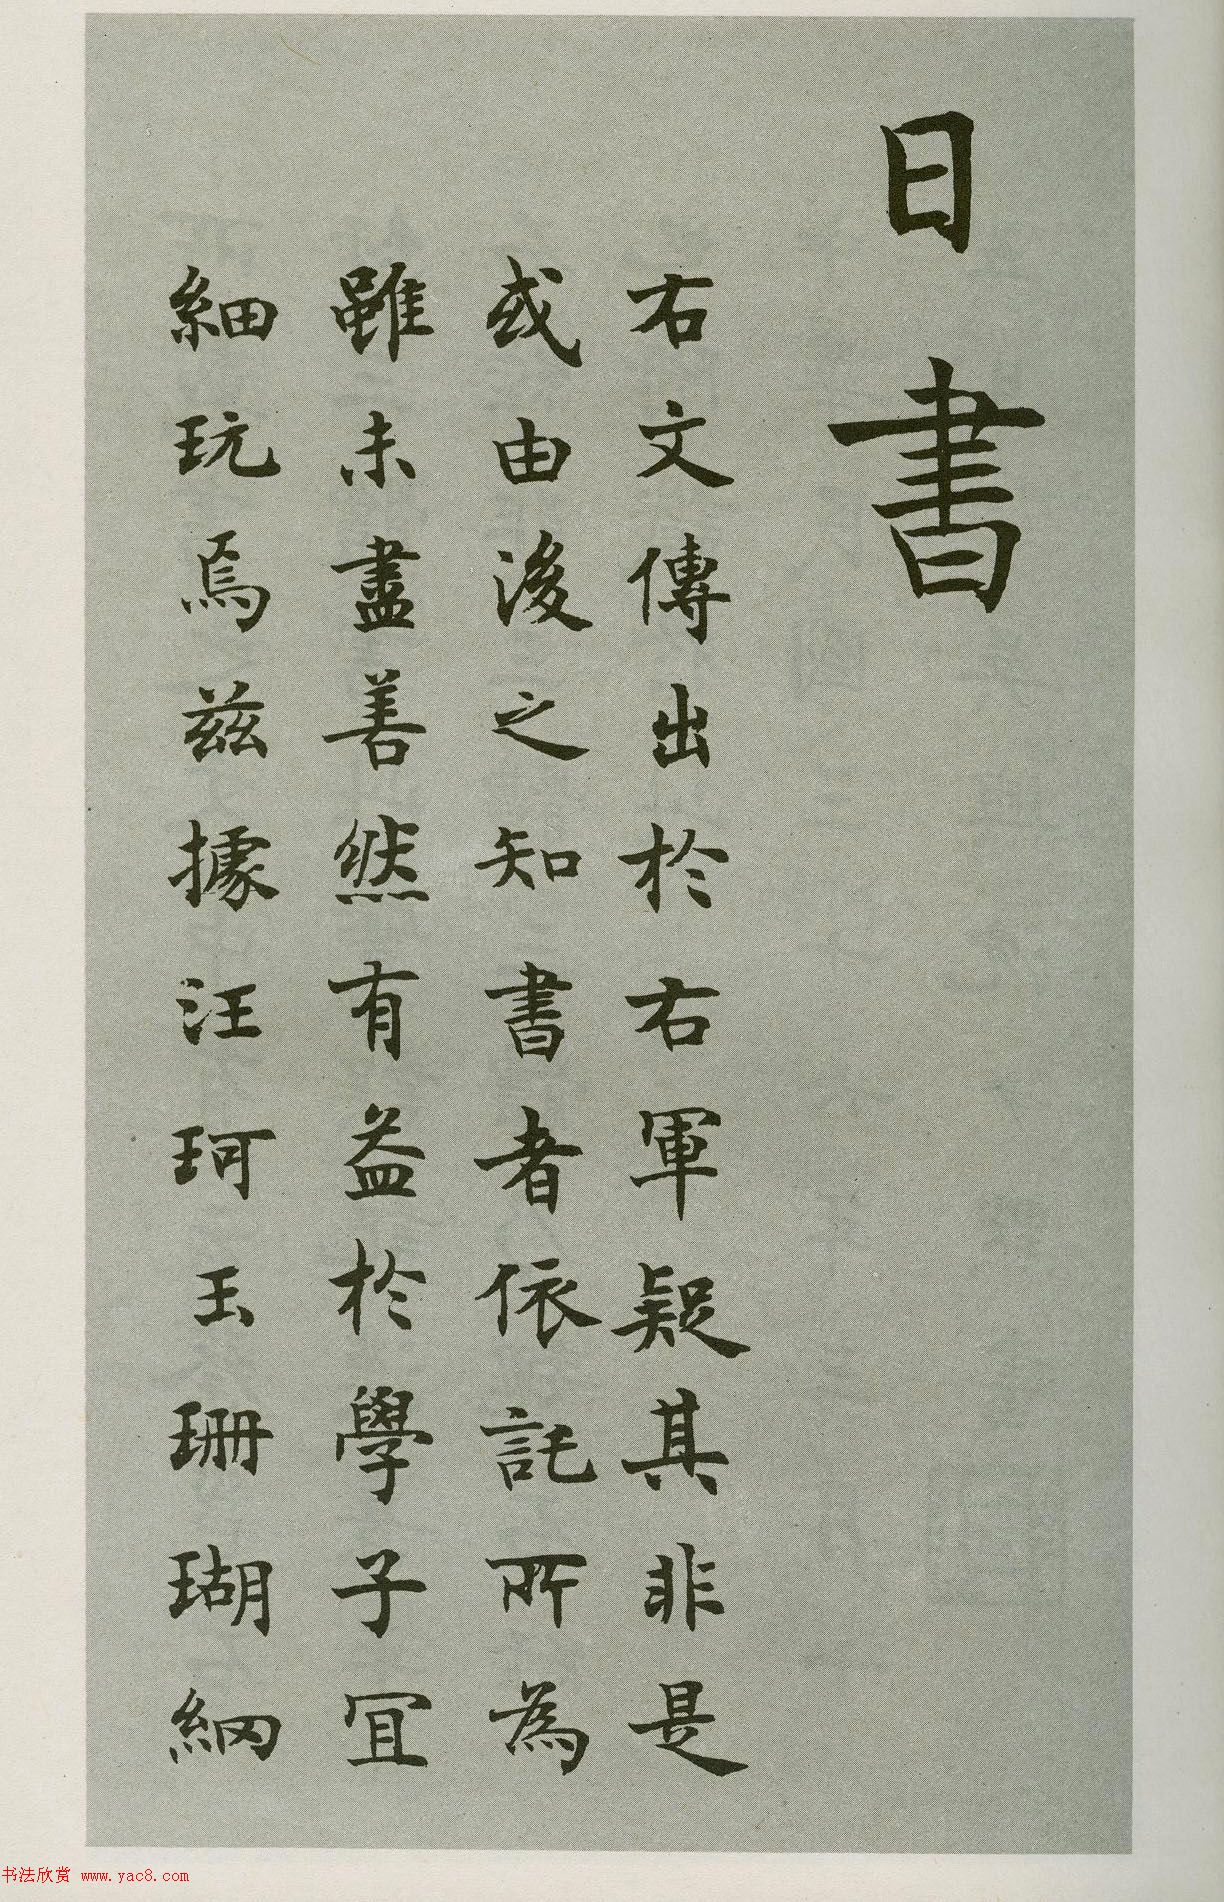 日書
右文傳出於右軍疑其非是
或由後之知書者依託所為
雖未盡善然有益於學子宜
細玩焉兹據汪珂玉珊瑚網
书法欣赏 www.yac8.com